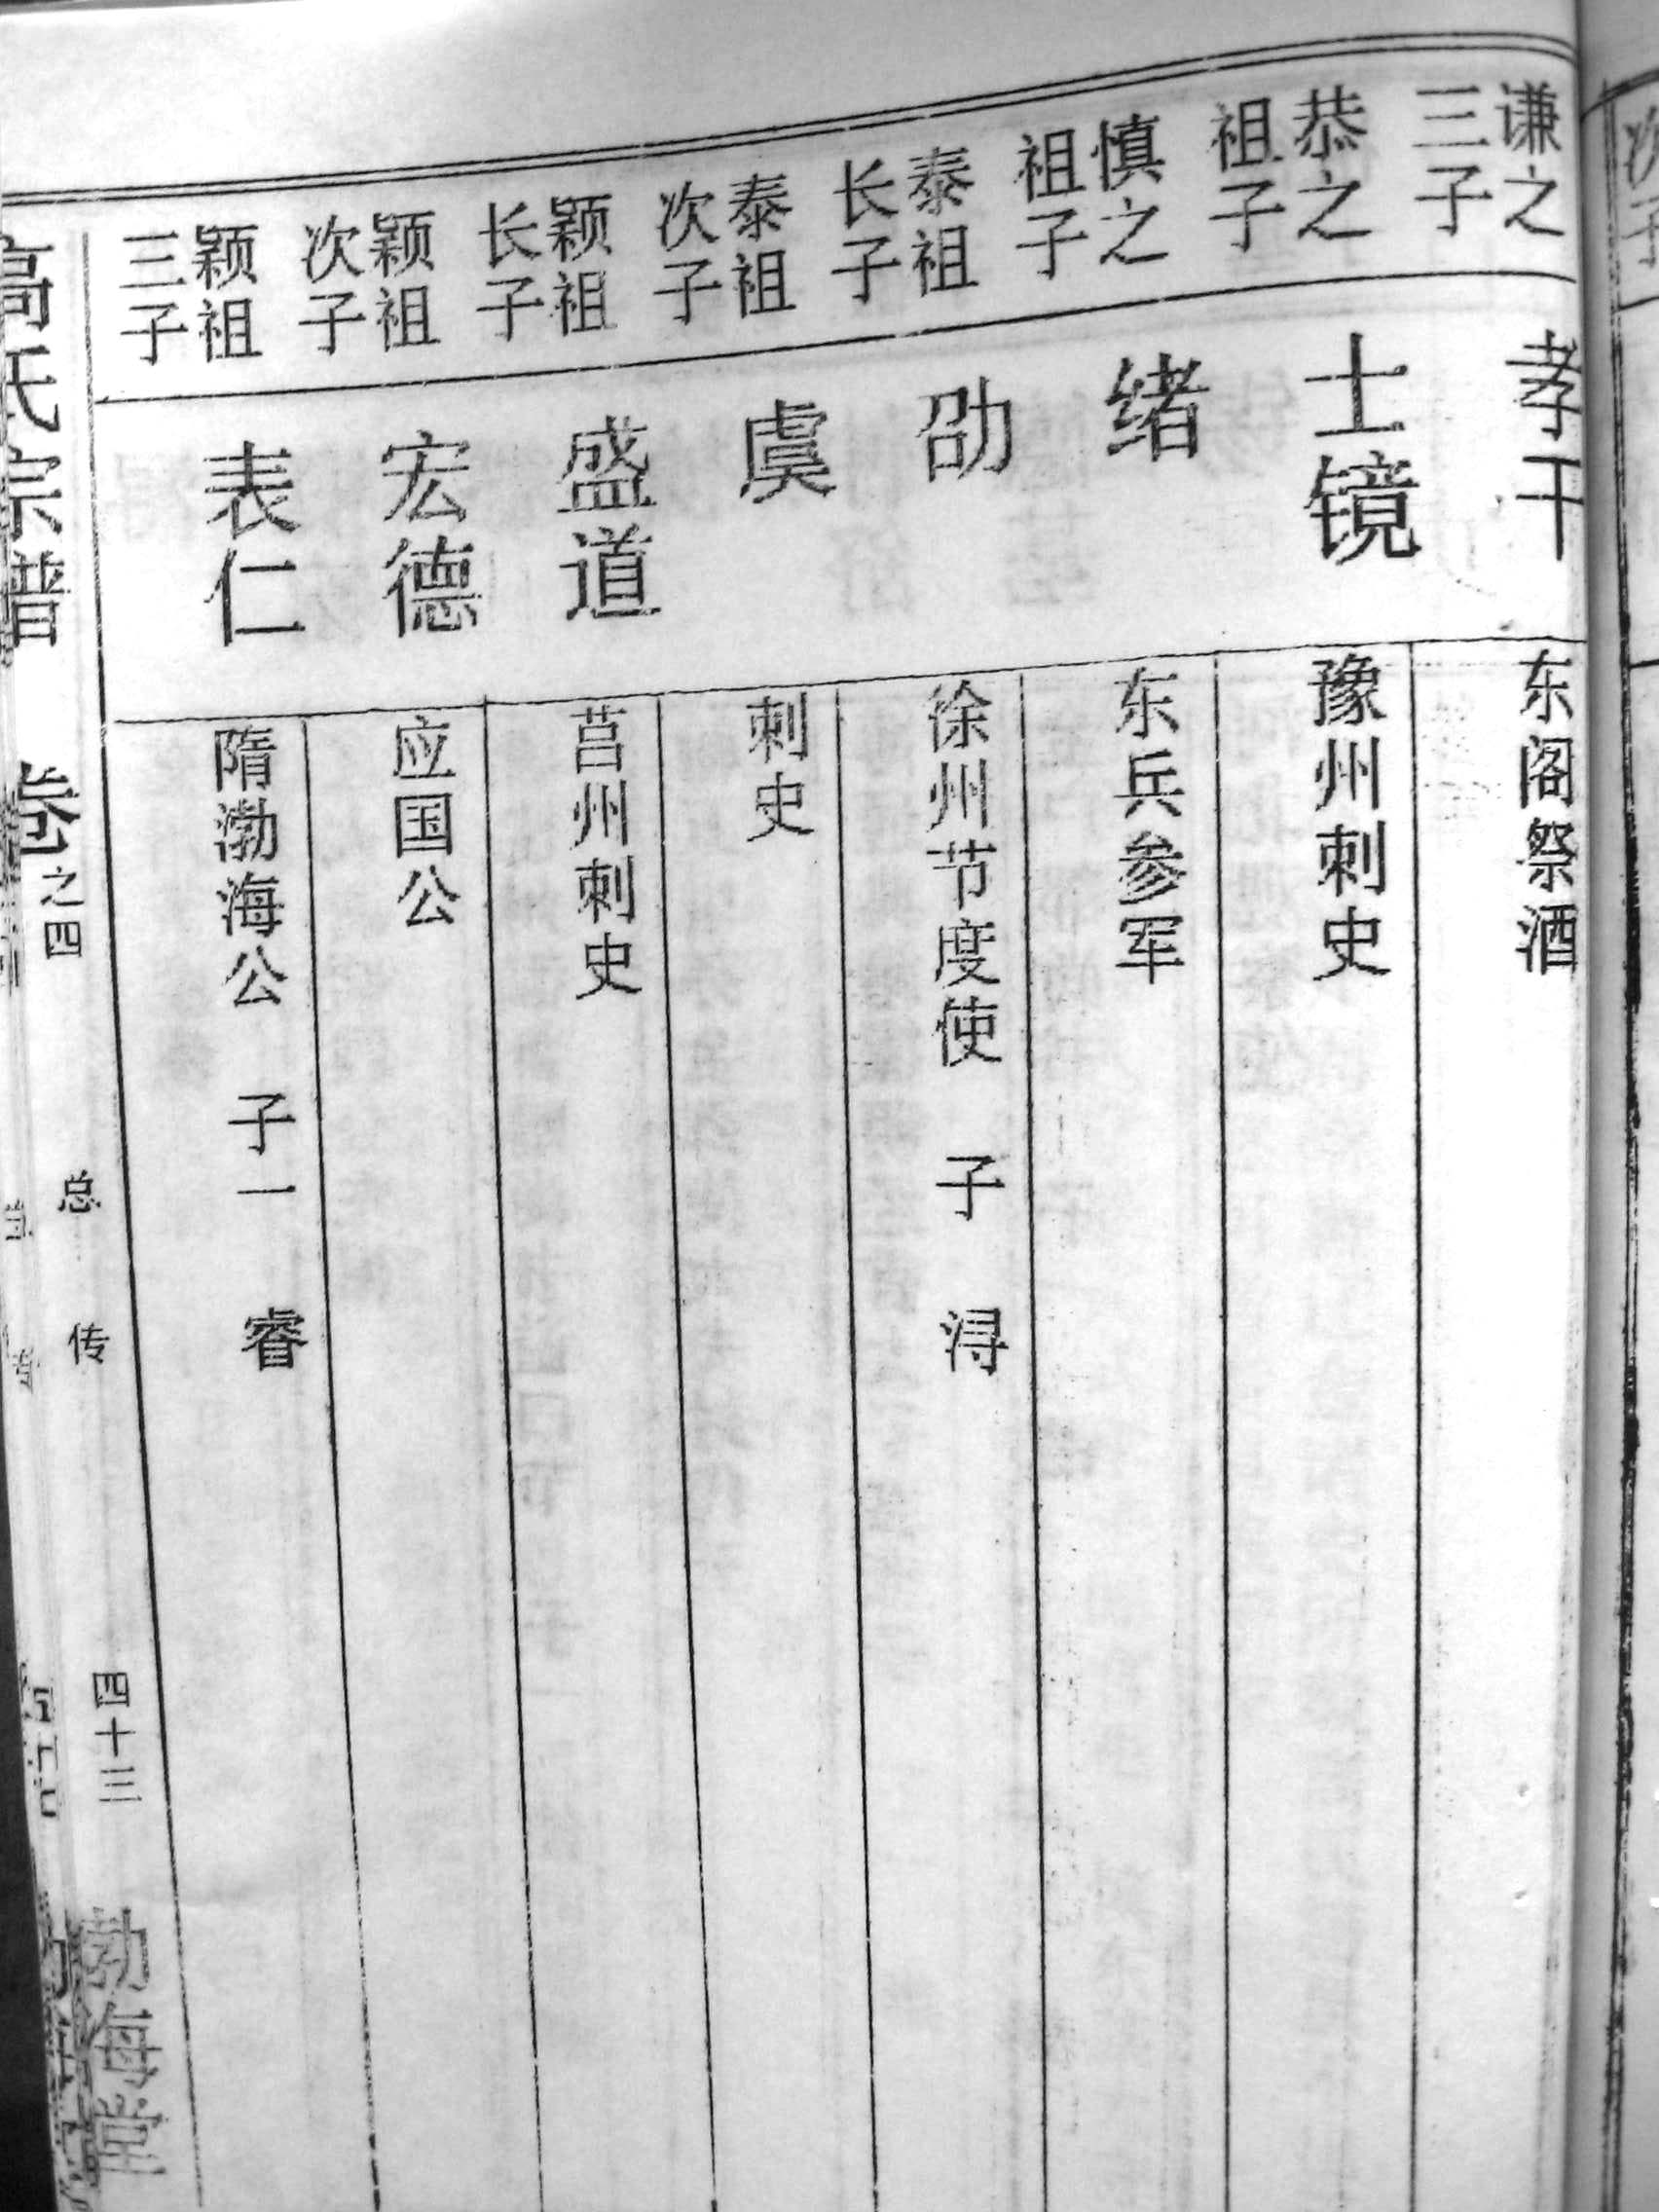 谦之三子
孝干
东阁祭酒
恭之祖子
士镜
豫州刺史
慎之祖子
绪
东兵参军
泰祖长子
劭
徐州节度使 子 浔
泰祖次子
虞
刺史
颖祖长子
盛道
莒州刺史
颖祖次子
宏德
应国公
颖祖三子
表仁
隋渤海公 子一 睿
高氏宗谱 卷之四 总传 四十三 渤海堂
次子